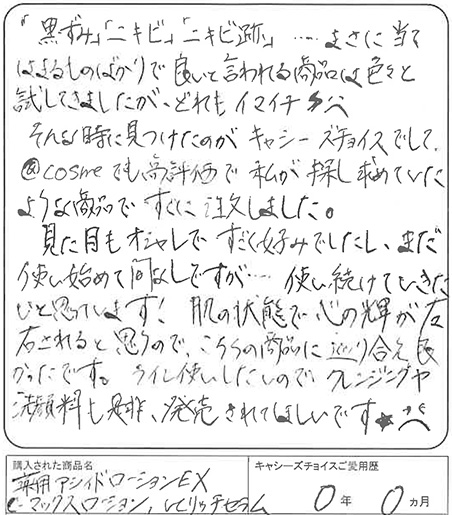 「黒ずみ」「ニキビ」「ニキビ跡」……まさに当て
はまるものばかりで良いと言われる商品は色々と
試してきましたが、どれもイマイチ
そんな時に見つけたのがキャシーズチョイスでして、
@cosmeでも高評価で私が探し求めていた
ような商品ですぐに注文しました。
見た目もオシャレですごく好みでしたし、まだ
使い始めて間なしですが…使い続けていきた
いと思っています!肌の状態で心の輝が左
右されると思うので、こちらの商品に巡り合え良
かったです。ライン使いしたいのでクレンジングや
洗顔料も是非、発売されてほしいです★
購入された商品名
薬用アシィドローションEX
C-マックスローション、VCリッチセラム
キャシーズチョイスご愛用歴
0年0ヵ月